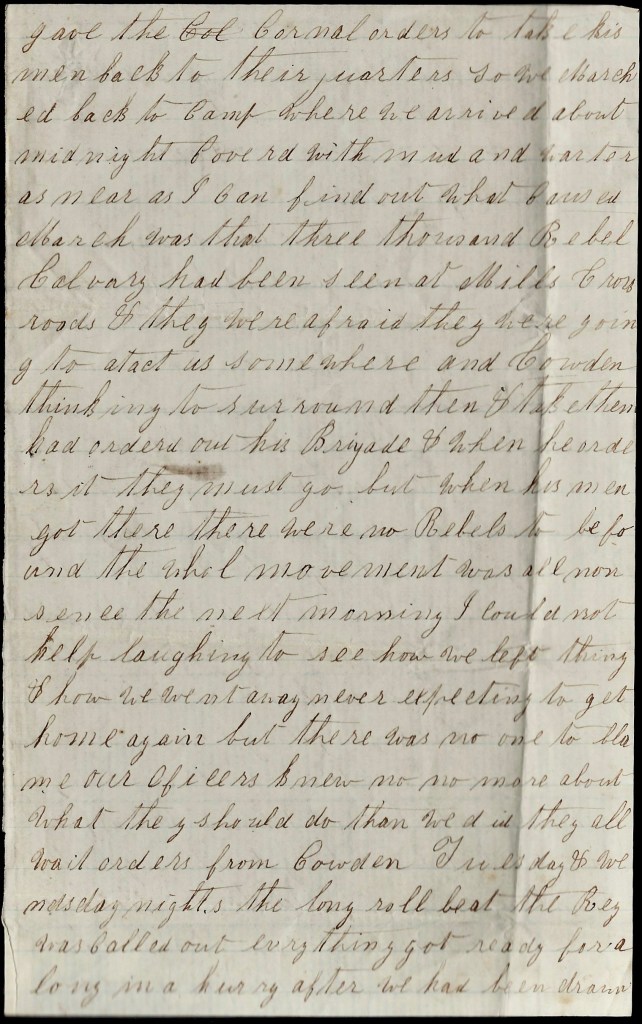 gave the Col Cornal orders to take his
men back to their quarters so we March
ed back to Camp where we arrived about
midnight Coverd with mud and warter
as near as I can find out what Caused
March was that three thousand Rebel
Calvary had been seen at Mills Cross
roads & they were afraid they were goin
g to atact us somewhere and Cowden
thinking to surround then & take them
had orderd out his Brigade & when he orde
rs it they must go but when his men
got there there were no Rebels to be fo
und the whol movement was all non
sence the nett morning I could not
help laughing to see how we left thing
& how we went away never expecting to get
home again but there was no one to bla
me our oficers knew no no more about
what they should do than we did they all
wait orders from Cowden Tuesday & We
ndsday nights the long roll beat the Reg
was called out everything got ready for a
long in a hurry after we had been drawn